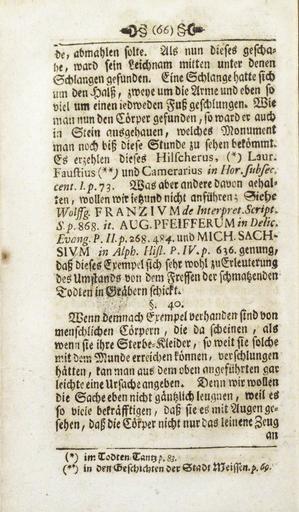 (66)
de, abmahlen solte. Als nun dieses gescha-
he, ward sein Leichnam mitten unter denen
Schlangen gefunden. Eine Schlange hatte sich
um den Halß, zweye um die Arme und eben so
viel um einen iedweden Fuß geschlungen. Wie
man nun den Cörper gefunden, so ward er auch
in Stein ausgehauen, welches Monument
man noch biß diese Stunde zu sehen bekömmt.
Es erzehlen dieses Hilscherus, (*) Laur.
Faustius (**) und Camerarius in Hor. subsec.
cent. I. p. 73. Was aber andere davon gehal-
ten, wollen wir ietzund nicht anführen; Siehe
Wolffg. FRANZIVM de Interpret. Script.
S. p. 868. it. AUG. PFEIFFERUM in Delic.
Evang. P. II. p. 268. 484. und MICH. SACH-
SIVM in Alph. Hist. P. IV. p. 636. genung,
daß dieses Exempel sich sehr wohl zu Erleuterung
des Umstands von dem Fressen der schmatzenden
Todten in Gräbern schickt.
§. 40.
Wenn demnach Exempel verhanden sind von
menschlichen Cörpern, die da scheinen, als
wenn sie ihre Sterbe-Kleider, so weit sie solche
mit dem Munde erreichen können, verschlungen
hätten, kan man aus dem oben angeführten gar
leichte eine Ursache angeben. Denn wir wollen
die Sache eben nicht gäntzlich leugnen, weil es
so viele bekräfftigen, daß sie es mit Augen ge-
sehen, daß die Cörper nicht nur das leinene Zeug
an
(*) im Todten Tantz p. 83.
(**) in den Geschichten der Stadt Meissen. p. 69.